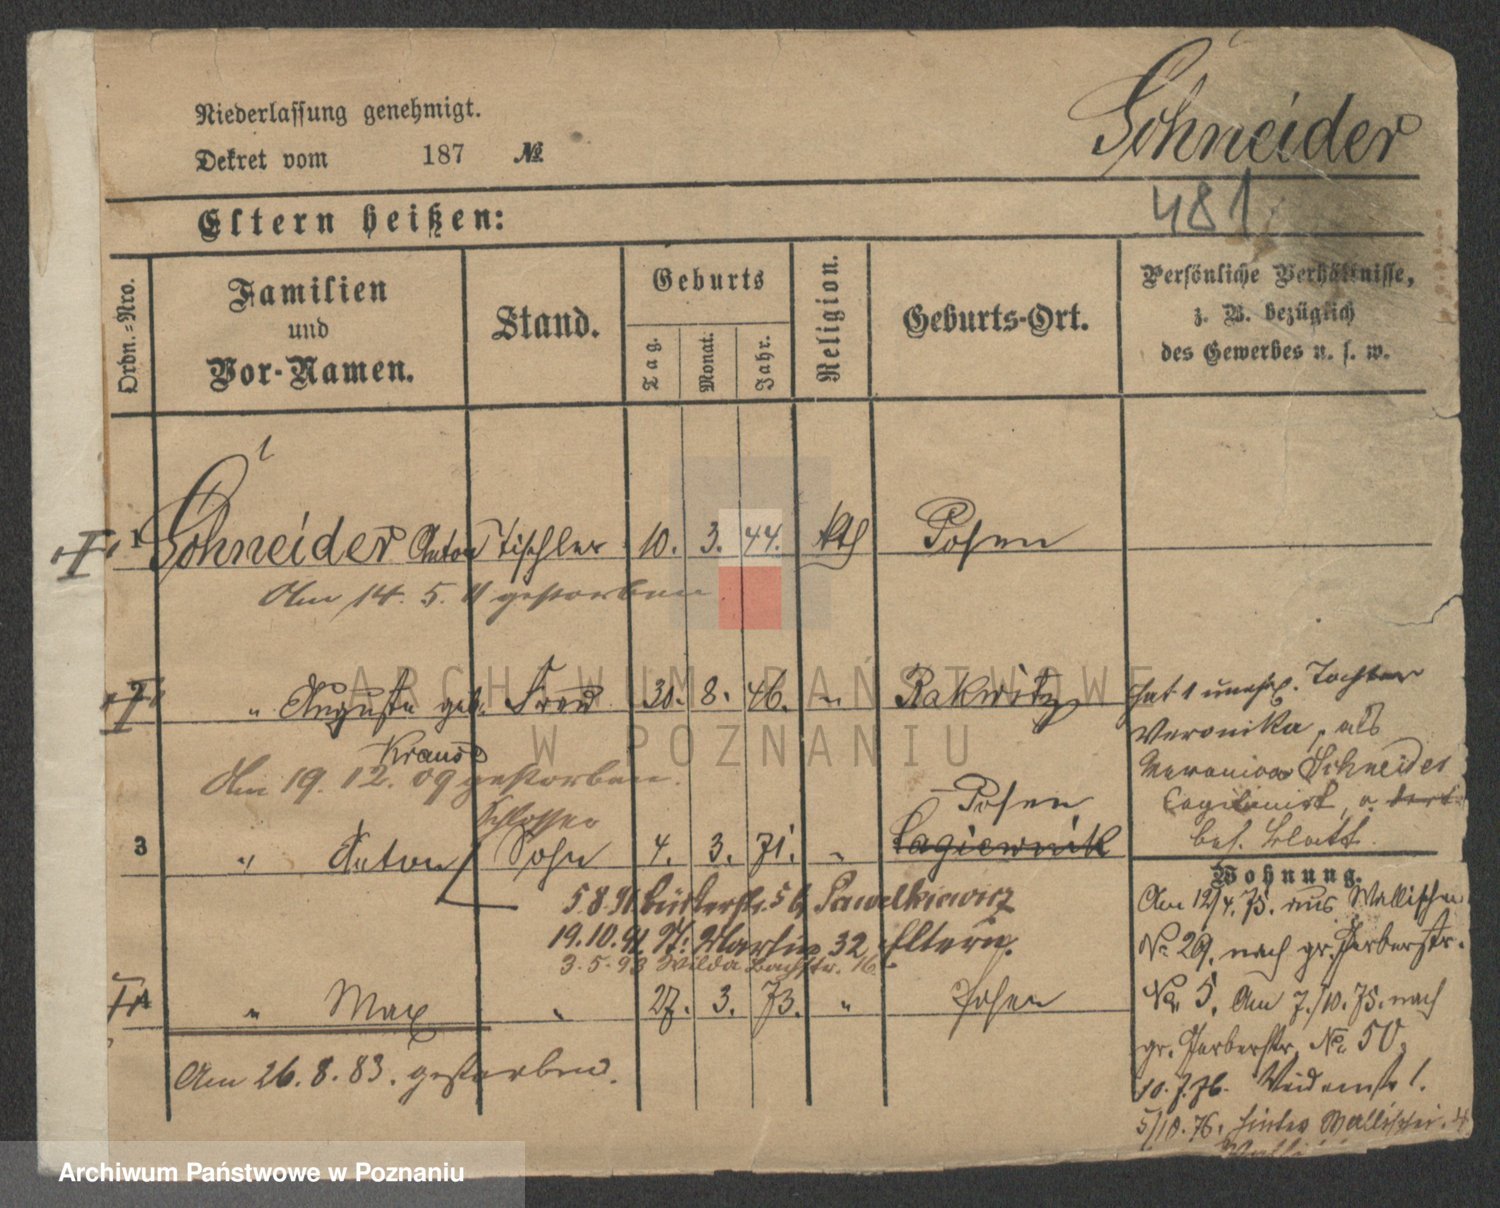 Niederlassung genehmigt.
Dekret vom 187 №
Schneider
481
Eltern heißen:
Ordn.-Nro.
Familien und Vor-Namen.
Stand.
Geburts
Tag.
Monat.
Jahr.
Religion.
Geburts-Ort.
Persönliche Verhältnisse,
z. B. bezüglich
des Gewerbes u. s. w.
1 Schneider Anton Tischler 10. 3. 44. kth Posen
Am 14. 5. 11 gestorben
" Auguste geb. Frau 30. 8. 46. " Rakwitz
Kraus
Am 19. 12. 09 gestorben.
hat 1 unehel. Tochter
Veronika, als
Schneider
Schlosser
Posen
3 " Anton Sohn 4. 3. 71. " Lagiewnik
bes. Blatt.
5.8.91 Bückerstr. 5 b Pawelkiewicz
19.10.91 St. Martin 32 Eltern.
3.5.93 Wilda Bachstr. 16
4 " Max " 27. 3. 73. " Posen
Am 26. 8. 83. gestorben.
Wohnung.
Am 12/4. 75. aus Wallischei
No 29. nach gr. Gerberstr.
No 5. Am 7./10. 75. nach
gr. Gerberstr. No 50.
10.7.76. 1.
5/10.76. hinter Wallischei. 4
ARCHIWUM PAŃSTWOWE
W POZNANIU
Archiwum Państwowe w Poznaniu